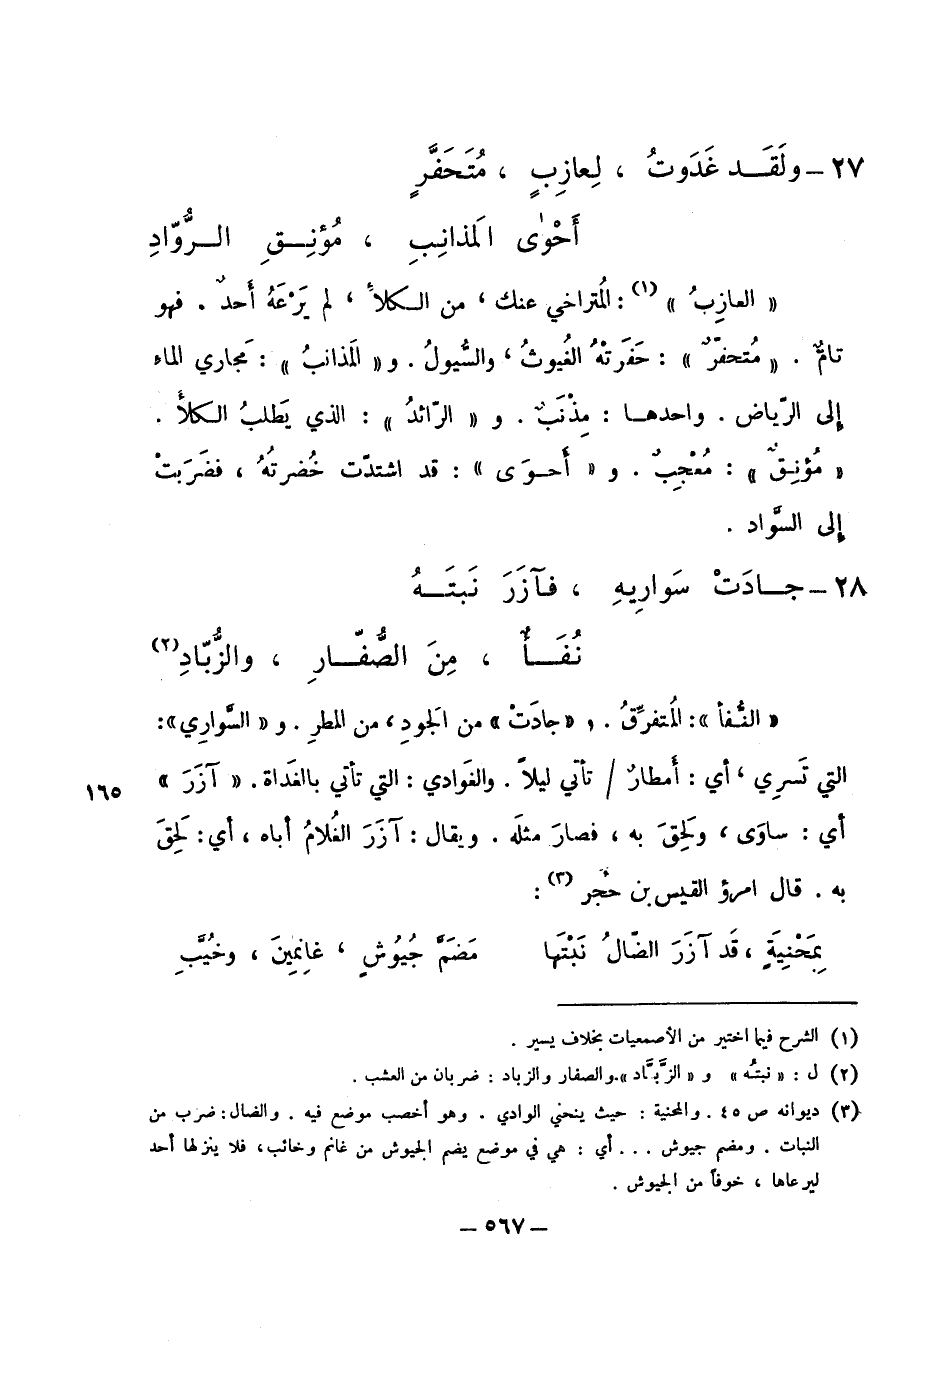 ٢٧ – ولَقَـــد غَدَوتُ ، لِعازِبٍ ، مُتَحَفَّرٍ
أَحْوٰى المَذانِبِ ، مُؤنِـــقِ الـــرُّوّادِ
« العازِبُ » (١) : المُتراخي عنك ، من الـكلأ ، لم يَرْعَهُ أَحدٌ . فهو
تامٌّ . « مُتحفَّرٌ » : حَفَرَتْهُ الغُيوثُ ، والسُّيولُ . و « المَذانبُ » : مَجاري الماء
إلى الرّياض . واحدهـا : مِذْنَبٌ . و « الرّائدُ » : الذي يَطلبُ الـكلأَ .
« مُؤنِـقٌ » : مُعْجِبٌ . و « أَحـوَى » : قد اشتدّت خُضرتُهُ ، فضَرَبتْ
إلى السَّواد .
٢٨ – جـــادَتْ سَوارِيهِ ، فـآزَرَ نَبتَـــهُ
نُفَـــأٌ ، مِنَ الصُّفّـــارِ ، والزُّبّادِ (٢)
« النُّفأ » : المُتفرِّقُ . و « جادَتْ » من الجَودِ ، من المطرِ . و « السَّواري » :
التي تَسرِي ، أي : أَمطارٌ / تأتي ليلاً . والغَوادي : التي تأتي بالغَداة . « آزَرَ » ١٦٥
أي : ساوَى ، ولَحِقَ به ، فصارَ مثلَه . ويقال : آزَرَ الغُلامُ أباه ، أي : لَحِقَ
به . قال امرؤ القيس بن حُجر (٣) :
بِمَحْنِيَةٍ ، قَد آزَرَ الضّالُ نَبْتَها مَضَمَّ جُيُوشٍ ، غانِمِينَ ، وخُيَّبِ
(١) الشرح فيما اختير من الأصمعيات بخلاف يسير .
(٢) ل : « نبتُه » و « الزَّبَّاد » . والصفار والزباد : ضربان من العشب .
(٣) ديوانه ص ٤٥ . والمحنية : حيث ينحني الوادي . وهو أخصب موضع فيه . والضال : ضرب من
النبات . ومضم جيوش . . . أي : هي في موضع يضم الجيوش من غانم وخائب ، فلا ينزلها أحد
ليرعاها ، خوفاً من الجيوش .
– ٥٦٧ –